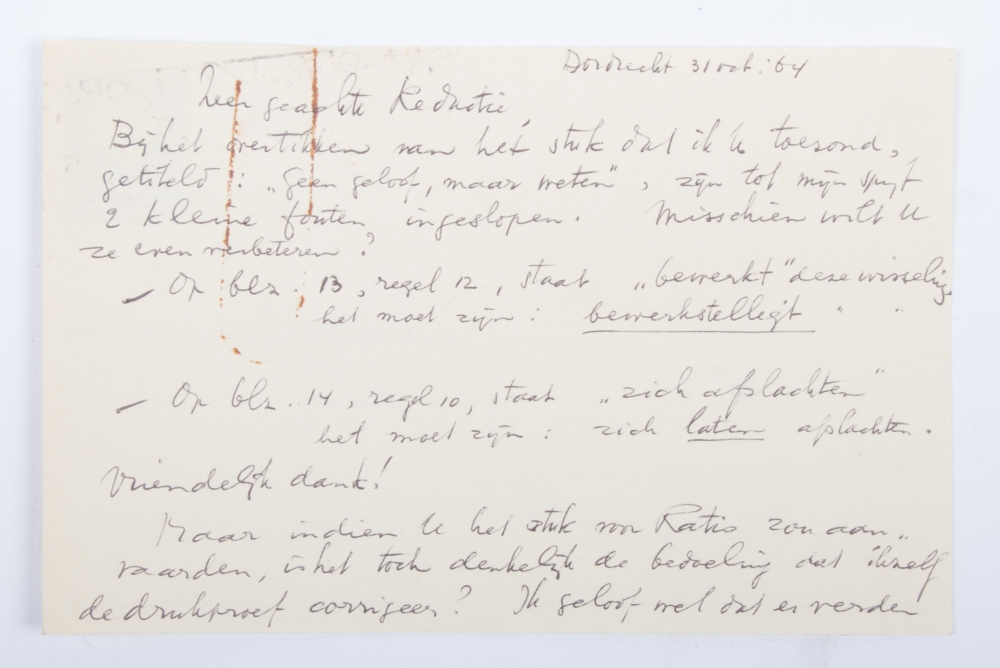 Dordrecht 31 oct. '64
Zeer geachte Redactie,
Bij het overtikken van het stuk dat ik U toezond,
getiteld: „Geen geloof, maar weten", zijn tot mijn spijt
2 kleine fouten ingeslopen. Misschien wilt U
ze even verbeteren?
— Op blz. 13, regel 12, staat „bewerkt" deze wisseling,
het moet zijn: bewerkstelligt " "
— Op blz. 14, regel 10, staat „zich afslachten"
het moet zijn: zich laten afslachten.
Vriendelijk dank!
Maar indien U het stuk voor Ratio zou aan„
vaarden, is het toch denkelijk de bedoeling dat ikzelf
de drukproef corrigeer? Ik geloof wel dat er verder